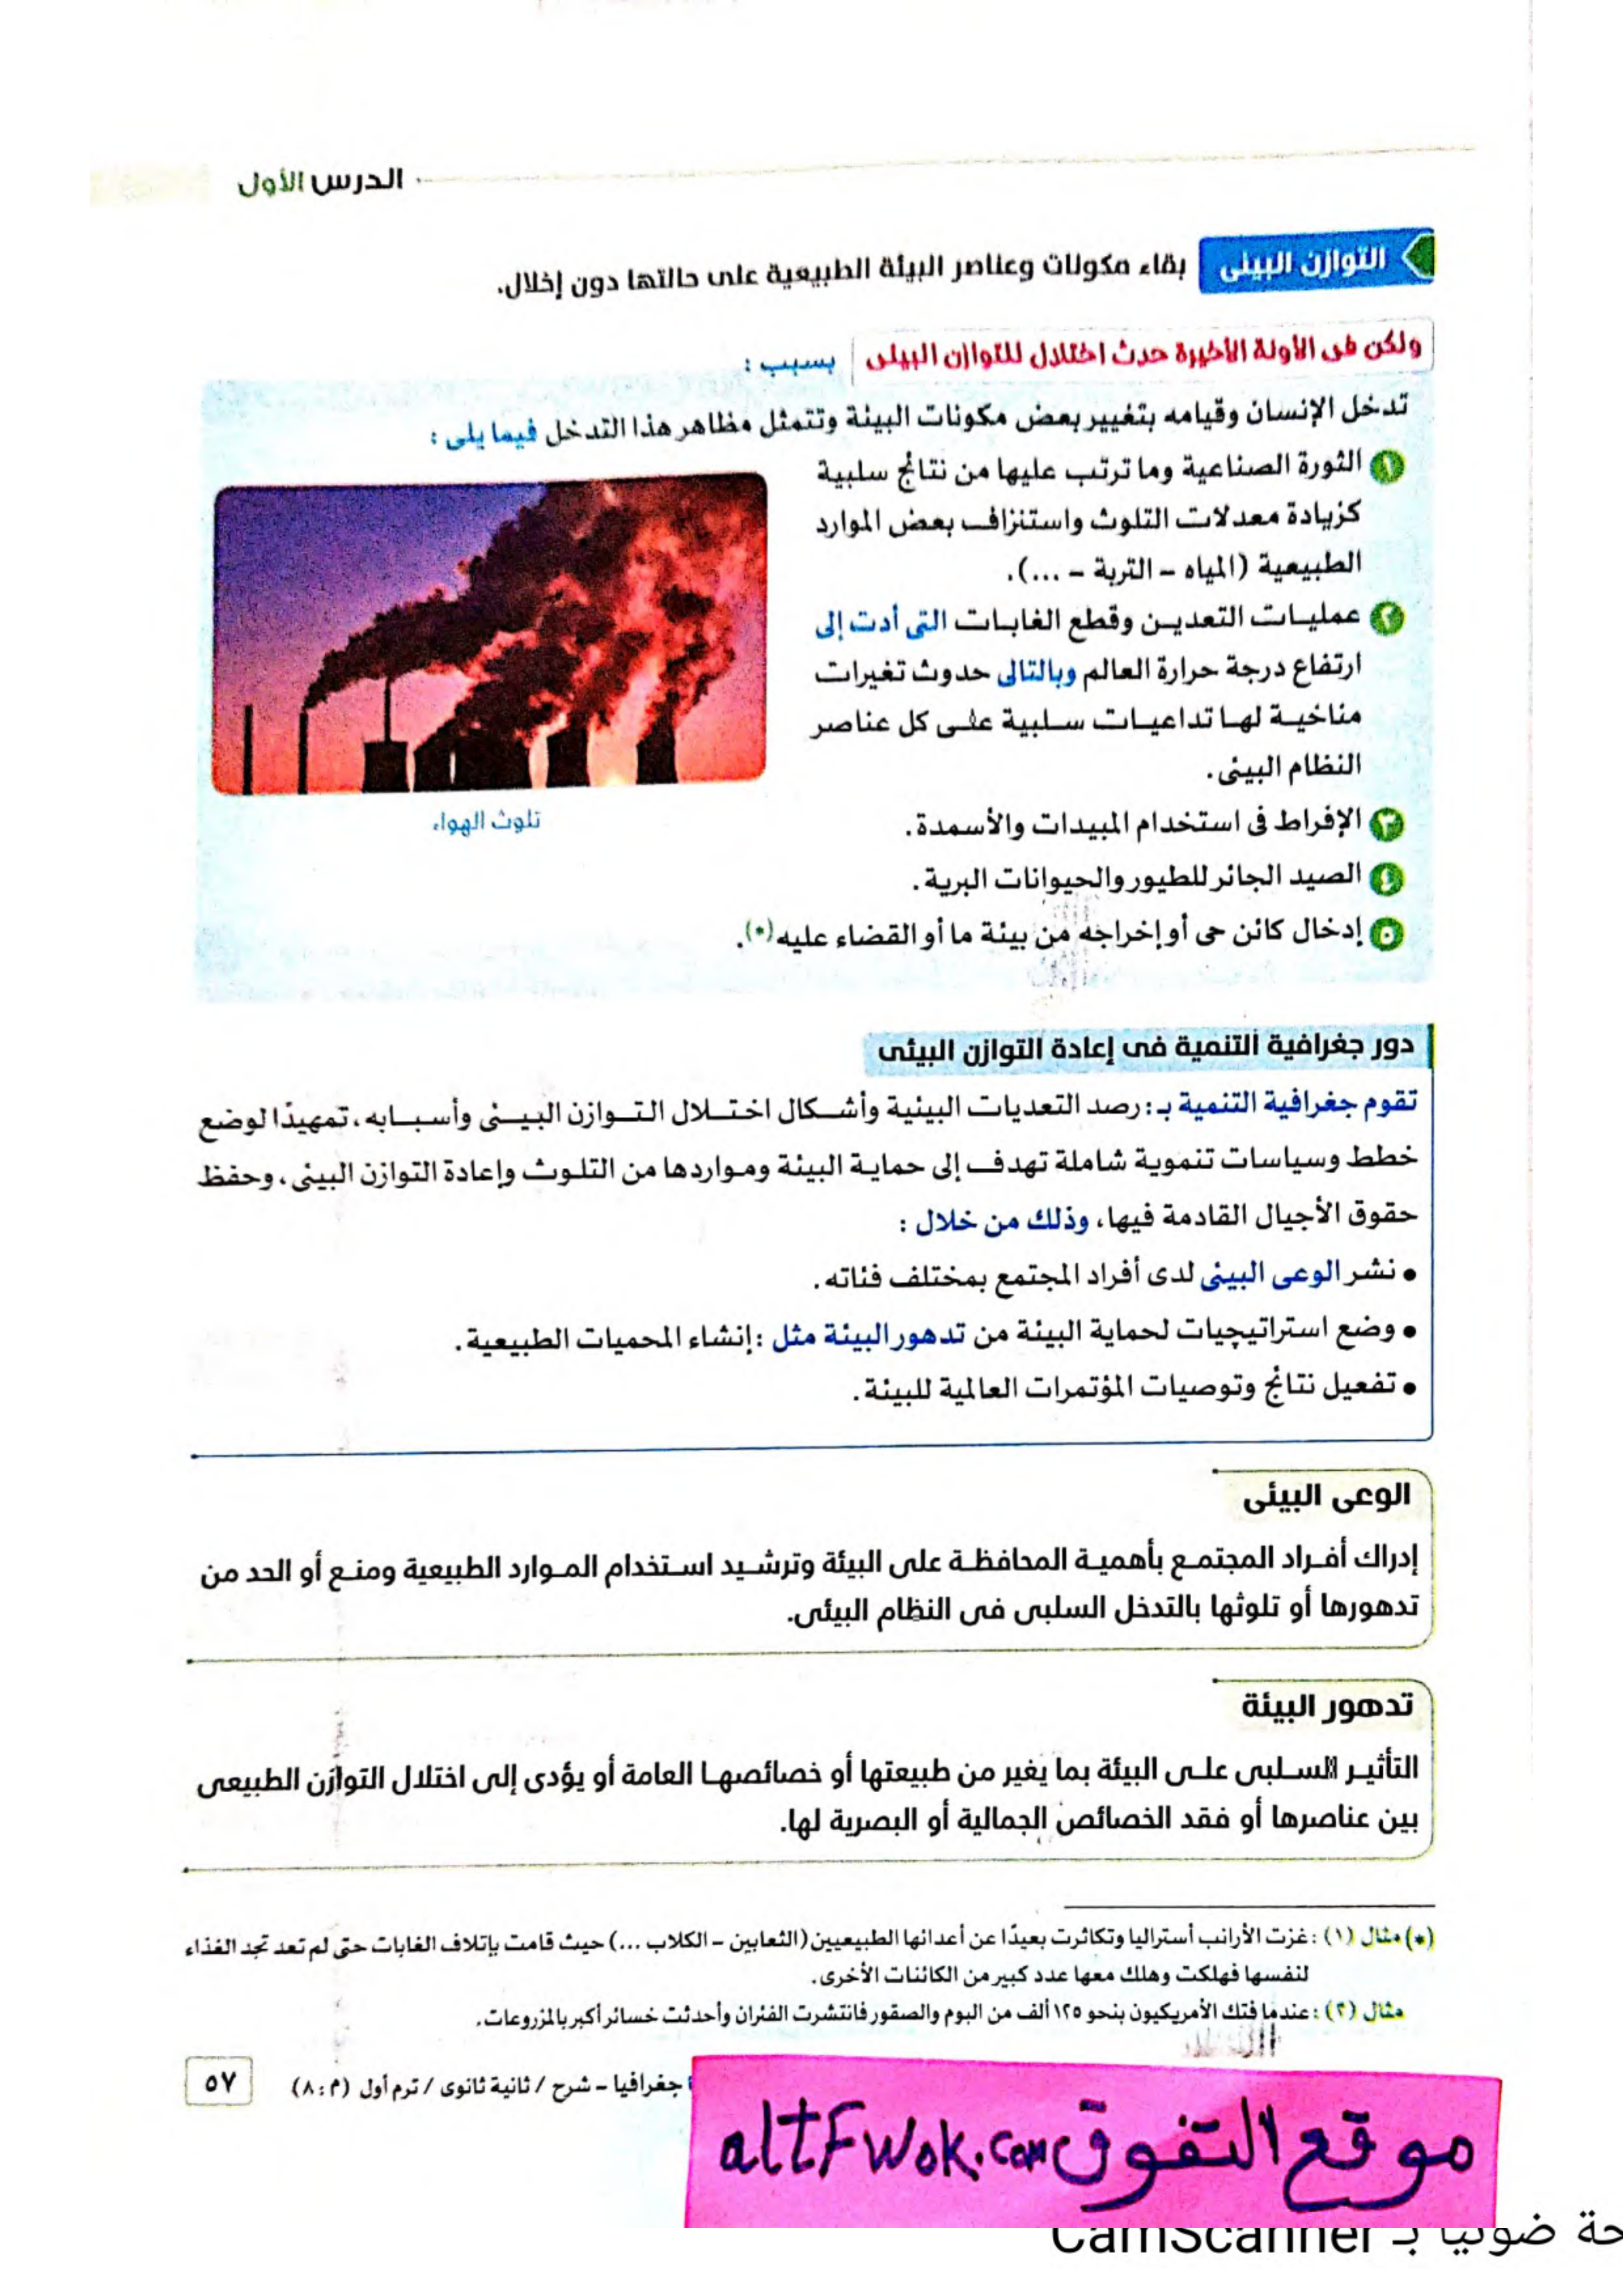 الدرس الأول
التوازن البيئى
بقاء مكونات وعناصر البيئة الطبيعية على حالتها دون إخلال.
ولكن فى الآونة الأخيرة حدث اختلال للتوازن البيئى بسبب :
تدخل الإنسان وقيامه بتغيير بعض مكونات البيئة وتتمثل مظاهر هذا التدخل فيما يلى :
١ الثورة الصناعية وما ترتب عليها من نتائج سلبية
كزيادة معدلات التلوث واستنزاف بعض الموارد
الطبيعية (المياه - التربة - ...).
٢ عمليات التعدين وقطع الغابات التى أدت إلى
ارتفاع درجة حرارة العالم وبالتالى حدوث تغيرات
مناخية لها تداعيات سلبية على كل عناصر
النظام البيئى.
٣ الإفراط فى استخدام المبيدات والأسمدة.
٤ الصيد الجائر للطيور والحيوانات البرية.
٥ إدخال كائن حى أو إخراجه من بيئة ما أو القضاء عليه(*).
تلوث الهواء
دور جغرافية التنمية فى إعادة التوازن البيئى
تقوم جغرافية التنمية بـ : رصد التعديات البيئية وأشكال اختلال التوازن البيئى وأسبابه، تمهيدًا لوضع
خطط وسياسات تنموية شاملة تهدف إلى حماية البيئة ومواردها من التلوث وإعادة التوازن البيئى، وحفظ
حقوق الأجيال القادمة فيها، وذلك من خلال :
• نشر الوعى البيئى لدى أفراد المجتمع بمختلف فئاته.
• وضع استراتيچيات لحماية البيئة من تدهور البيئة مثل : إنشاء المحميات الطبيعية.
• تفعيل نتائج وتوصيات المؤتمرات العالمية للبيئة.
الوعى البيئى
إدراك أفراد المجتمع بأهمية المحافظة على البيئة وترشيد استخدام الموارد الطبيعية ومنع أو الحد من
تدهورها أو تلوثها بالتدخل السلبى فى النظام البيئى.
تدهور البيئة
التأثير السلبى على البيئة بما يغير من طبيعتها أو خصائصها العامة أو يؤدى إلى اختلال التوازن الطبيعى
بين عناصرها أو فقد الخصائص الجمالية أو البصرية لها.
(*) مثال (١) : غزت الأرانب أستراليا وتكاثرت بعيدًا عن أعدائها الطبيعيين (الثعابين - الكلاب ...) حيث قامت بإتلاف الغابات حتى لم تعد تجد الغذاء
لنفسها فهلكت وهلك معها عدد كبير من الكائنات الأخرى.
مثال (٢) : عندما فتك الأمريكيون بنحو ١٢٥ ألف من البوم والصقور فانتشرت الفئران وأحدثت خسائر أكبر بالمزروعات.
جغرافيا - شرح / ثانية ثانوى / ترم أول (م : ٨)
٥٧
موقع التفوق altFwok.com
حة ضوئيا بـ CamScanner